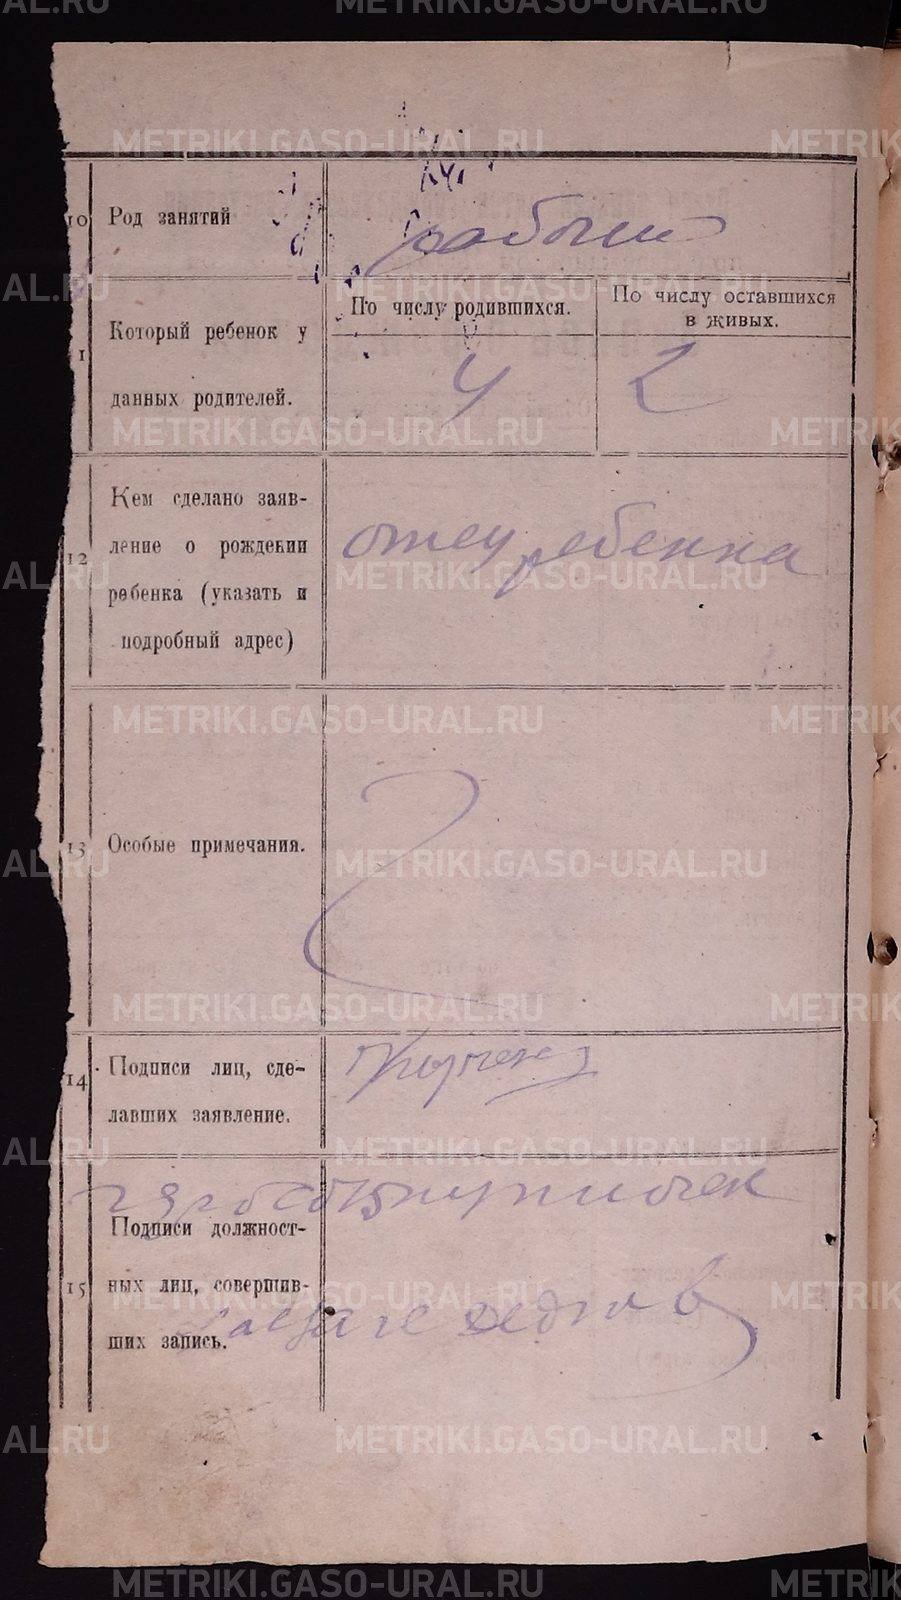 METRIKI.GASO-URAL.RU
10 Род занятий рабочий
11 Который ребенок у
данных родителей.
По числу родившихся.
По числу оставшихся
в живых.
4 2
12 Кем сделано заяв-
ление о рождении
ребенка (указать и
подробный адрес)
отец ребенка
13 Особые примечания.
14 Подписи лиц, сде-
лавших заявление.
15 Подписи должност-
ных лиц, совершив-
ших запись.